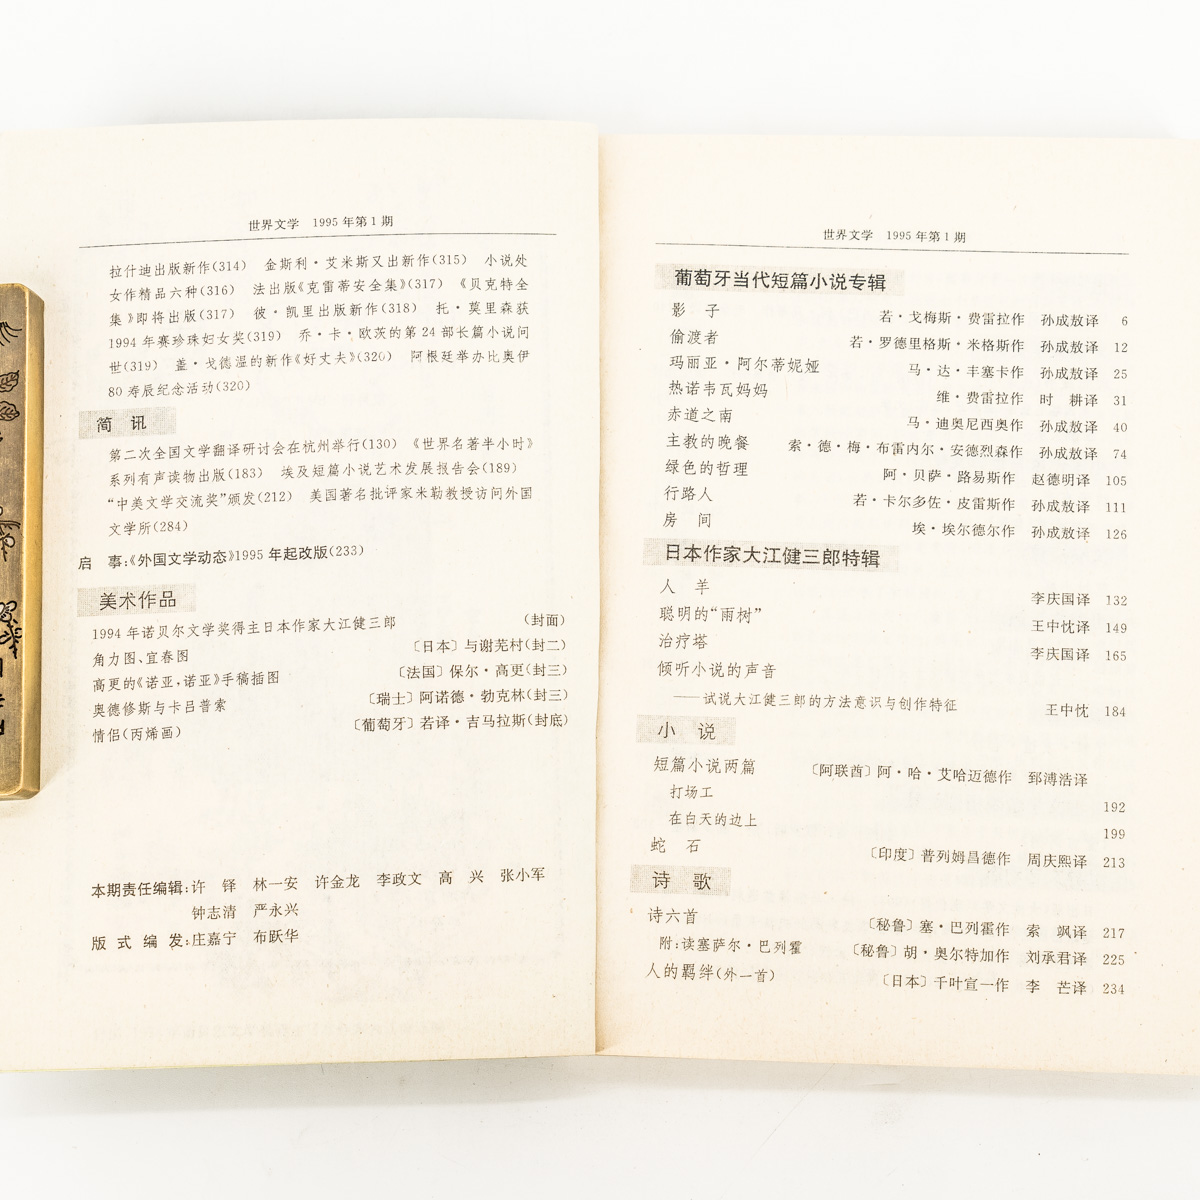 世界文学 1995年第1期
拉什迪出版新作(314) 金斯利·艾米斯又出新作(315) 小说处
女作精品六种(316) 法出版《克雷蒂安全集》(317) 《贝克特全
集》即将出版(317) 彼·凯里出版新作(318) 托·莫里森获
1994年赛珍珠妇女奖(319) 乔·卡·欧茨的第24部长篇小说问
世(319) 盖·戈德温的新作《好丈夫》(320) 阿根廷举办比奥伊
80寿辰纪念活动(320)
简 讯
第二次全国文学翻译研讨会在杭州举行(130) 《世界名著半小时》
系列有声读物出版(183) 埃及短篇小说艺术发展报告会(189)
“中美文学交流奖”颁发(212) 美国著名批评家米勒教授访问外国
文学所(284)
启 事:《外国文学动态》1995年起改版(233)
美术作品
1994年诺贝尔文学奖得主日本作家大江健三郎 (封面)
角力图、宜春图 〔日本〕与谢芜村(封二)
高更的《诺亚,诺亚》手稿插图 〔法国〕保尔·高更(封三)
奥德修斯与卡吕普索 〔瑞士〕阿诺德·勃克林(封三)
情侣(丙烯画) 〔葡萄牙〕若译·吉马拉斯(封底)
本期责任编辑:许 铎 林一安 许金龙 李政文 高 兴 张小军
钟志清 严永兴
版式编发:庄嘉宁 布跃华
世界文学 1995年第1期
葡萄牙当代短篇小说专辑
影 子 若·戈梅斯·费雷拉作 孙成敖译 6
偷渡者 若·罗德里格斯·米格斯作 孙成敖译 12
玛丽亚·阿尔蒂妮娅 马·达·丰塞卡作 孙成敖译 25
热诺韦瓦妈妈 维·费雷拉作 时 耕译 31
赤道之南 马·迪奥尼西奥作 孙成敖译 40
主教的晚餐 索·德·梅·布雷内尔·安德烈森作 孙成敖译 74
绿色的哲理 阿·贝萨·路易斯作 赵德明译 105
行路人 若·卡尔多佐·皮雷斯作 孙成敖译 111
房 间 埃·埃尔德尔作 孙成敖译 126
日本作家大江健三郎特辑
人 羊 李庆国译 132
聪明的“雨树” 王中忱译 149
治疗塔 李庆国译 165
倾听小说的声音
——试说大江健三郎的方法意识与创作特征 王中忱 184
小 说
短篇小说两篇 〔阿联酋〕阿·哈·艾哈迈德作 郅溥浩译
打场工 192
在白天的边上 199
蛇 石 〔印度〕普列姆昌德作 周庆熙译 213
诗 歌
诗六首 〔秘鲁〕塞·巴列霍作 索 飒译 217
附:读塞萨尔·巴列霍 〔秘鲁〕胡·奥尔特加作 刘承君译 225
人的羁绊(外一首) 〔日本〕千叶宣一作 李 芒译 234